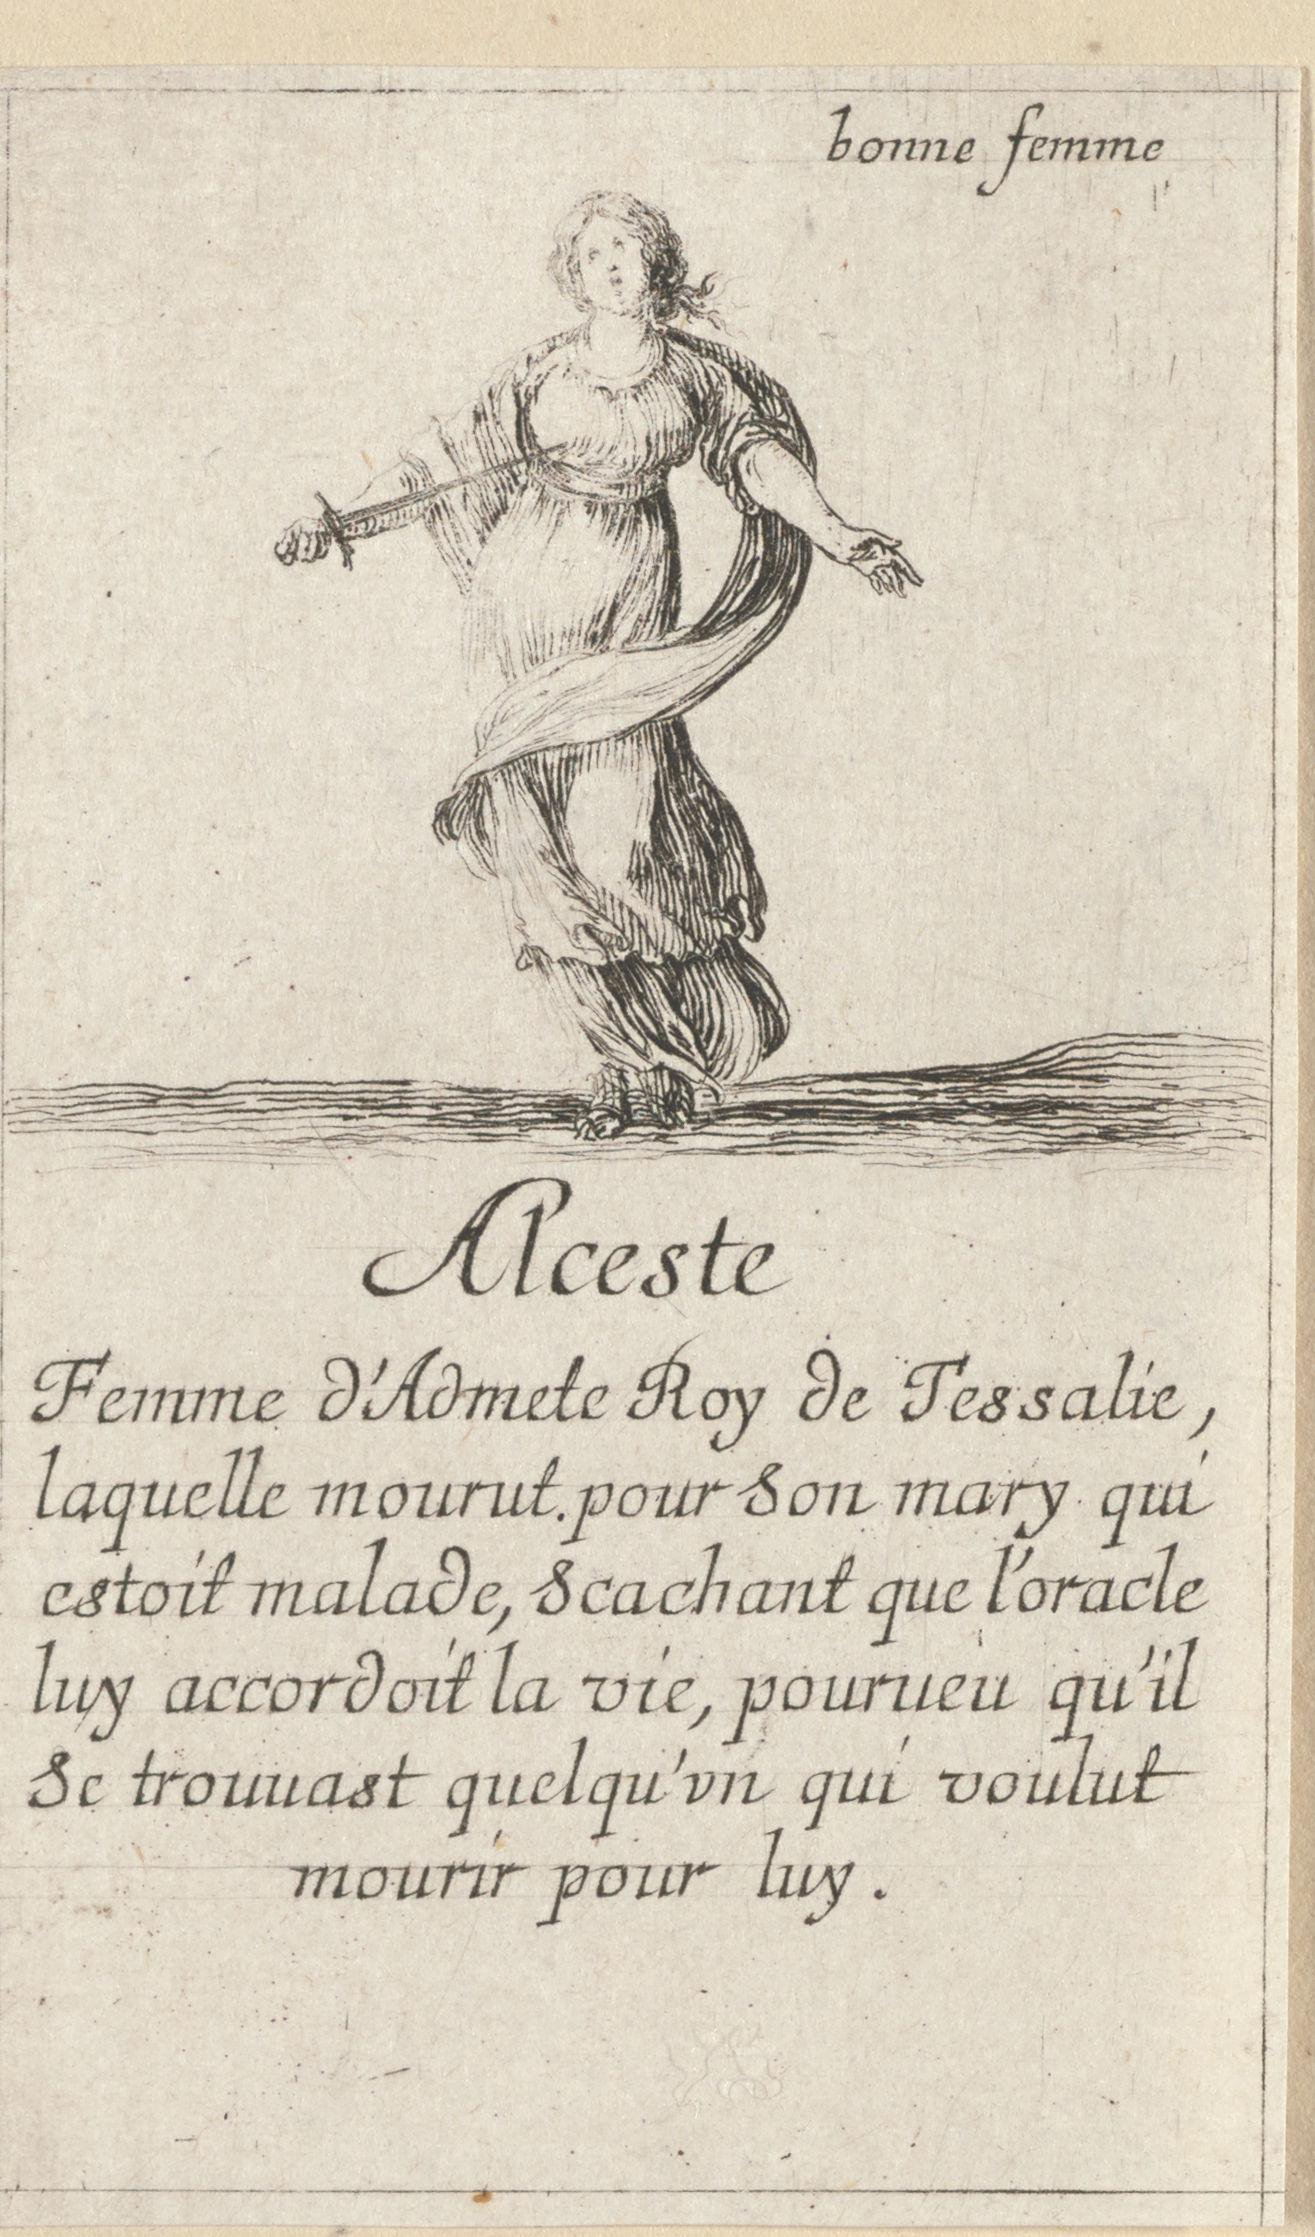 bonne femme
Alceste
Femme d'Admete Roy de Tessalie,
laquelle mourut. pour son mary qui
estoit malade, scachant que l'oracle
luy accordoit la vie, pourueu qu'il
se trouuast quelqu'vn qui voulut
mourir pour luy.